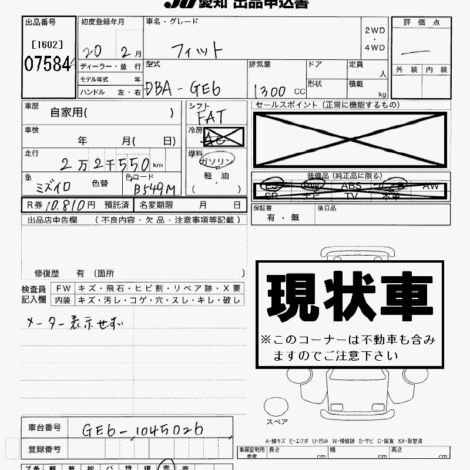 JU愛知 出品申込書
出品番号
[1602]
07584
初度登録年月
20 2月
ディーラー・並行
モデル年式 年
ハンドル 左・右
車名・グレード
フィット
2WD
・
4WD
評価点
外装 内装
型式
DBA-GE6
排気量
1300 CC
ドア
形状
定員
人
積載
kg
車歴
自家用( )
車検
年 月( )
走行
2万2千550km
色
ミズイロ
色替
色コード
B549M
シフト
FAT
冷房
AC
燃料
ガソリン
軽・油
・
セールスポイント(正常に機能するもの)
装備品(純正品に限る)
ABS
AW
TV
R券 10,810円 預託済
名変期限 月 日
保証書
有・無
後日品
出品店申告欄 (不良内容・欠品・注意事項等記載)
修復歴 有(箇所 )
検査員
記入欄
FW キズ・飛石・ヒビ割・リペア跡・X要
内装 キズ・汚レ・コゲ・穴・スレ・キレ・破レ
メーター表示せず
現状車
※このコーナーは不動車も含み
ますのでご注意下さい
スペア
車台番号
GE6-1045026
登録番号
A-線キズ E-エクボ U-凹み W-補修跡 S-サビ C-腐食 XX-取替済
長さ
cm
幅
cm
高さ
cm